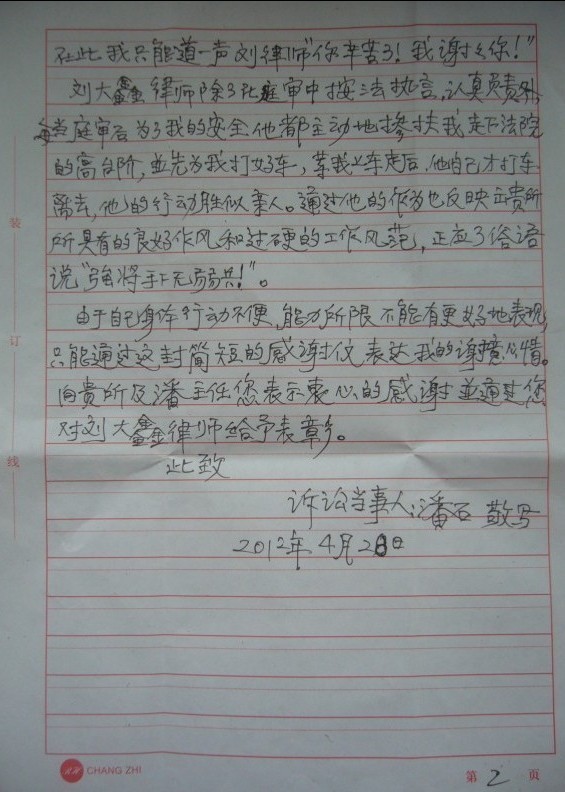 在此我只能道一声刘律师"你辛苦了!我谢谢你!"
刘大鑫律师除了在庭审中按法执言,认真负责外,
每当庭审后为了我的安全他都主动地掺扶我走下法院
的高台阶,並先为我打好车,等我上车走后,他自己才打车
离去,他的行动胜似亲人。通过他的作为也反映出贵所
所具有的良好作风和过硬的工作风范,正应了俗语
说"強将手下无弱兵!"。
由于自己身体行动不便,能力所限不能有更好地表现,
只能通过这封简短的感谢仪表达我的谢境心情。
向贵所及潘主任您表示衷心的感谢並通过您
对刘大鑫律师给予表章。
此致
诉讼当事人:潘石 敬写
2012年4月28日
装
订
线
CHANG ZHI
第 2 页